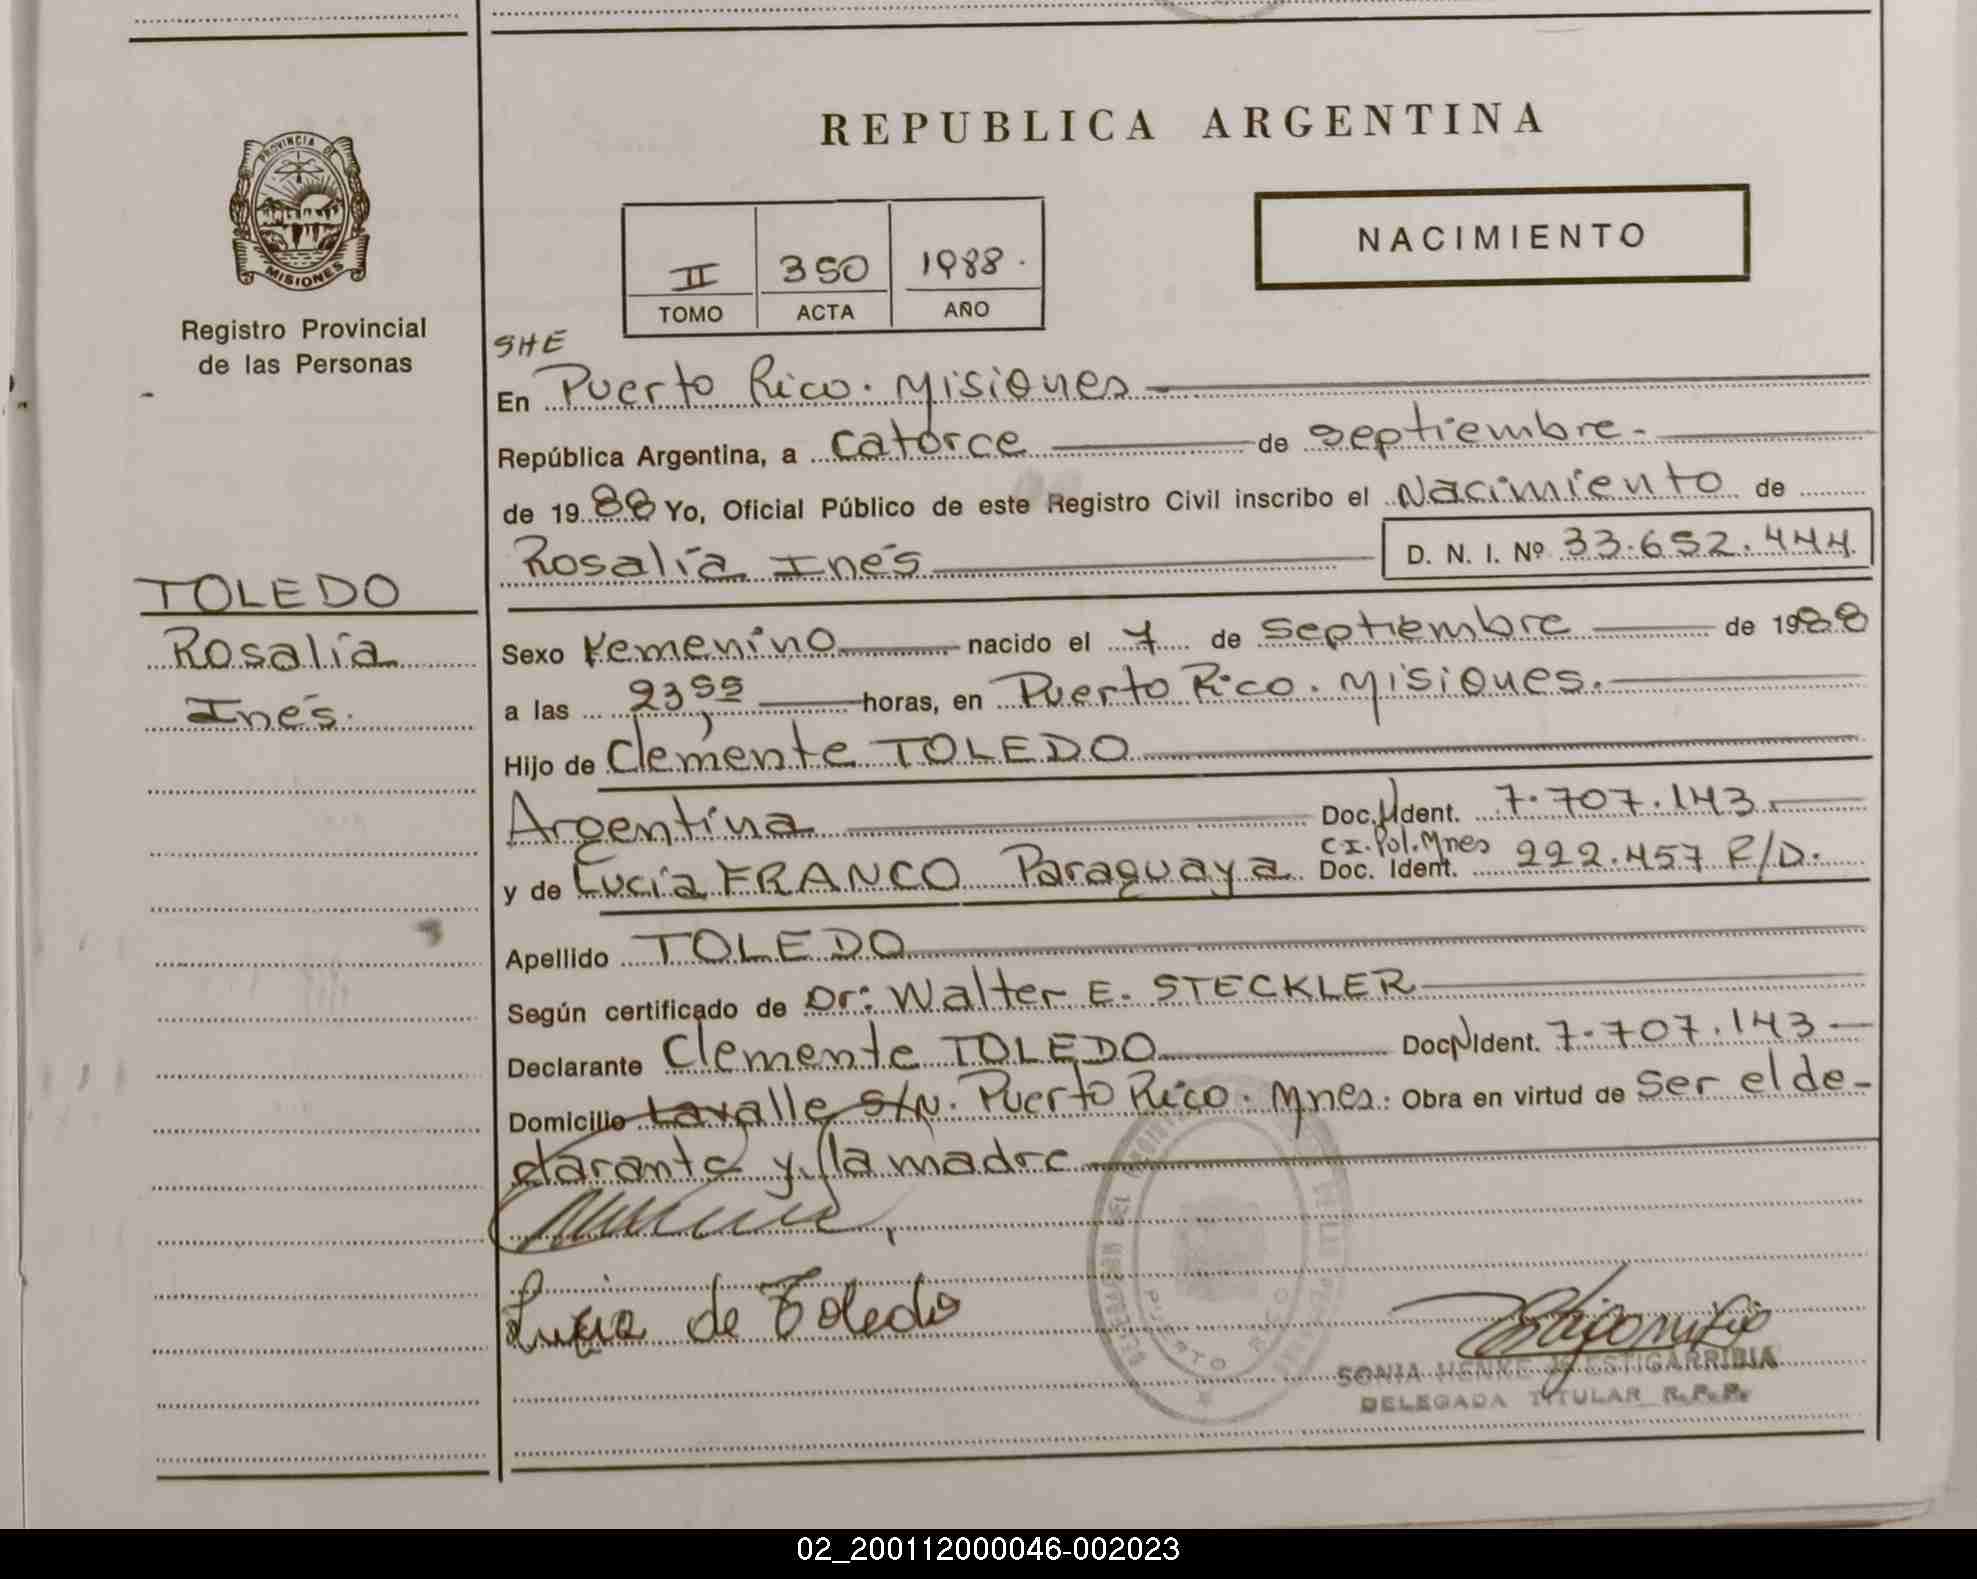 REPUBLICA ARGENTINA
PROVINCIA DE
MISIONES
Registro Provincial
de las Personas
NACIMIENTO
II 350 1988.
TOMO ACTA AÑO
SHE
En Puerto Rico. Misiones
República Argentina, a catorce de septiembre.
de 1988 Yo, Oficial Público de este Registro Civil inscribo el Nacimiento de
Rosalía Inés D. N. I. Nº 33.652.444
TOLEDO
Rosalía
Inés.
Sexo Femenino nacido el 7 de septiembre de 1988
a las 23,55 horas, en Puerto Rico. Misiones.
Hijo de Clemente TOLEDO
Argentina Doc. Ident. 7.707.143
C.I. Pol. Mnes
y de Lucía FRANCO Paraguaya Doc. Ident. 222.457 R/D.
Apellido TOLEDO
Según certificado de Dr: Walter E. STECKLER
Declarante Clemente TOLEDO Doc. Ident. 7.707.143
Domicilio Lavalle S/N. Puerto Rico. Mnes. Obra en virtud de ser el de-
clarante y la madre
Lucia de Toledo
PUERTO RICO
SONIA HENKE de ESTIGARRIBIA
DELEGADA TITULAR R.P.P.
02_200112000046-002023